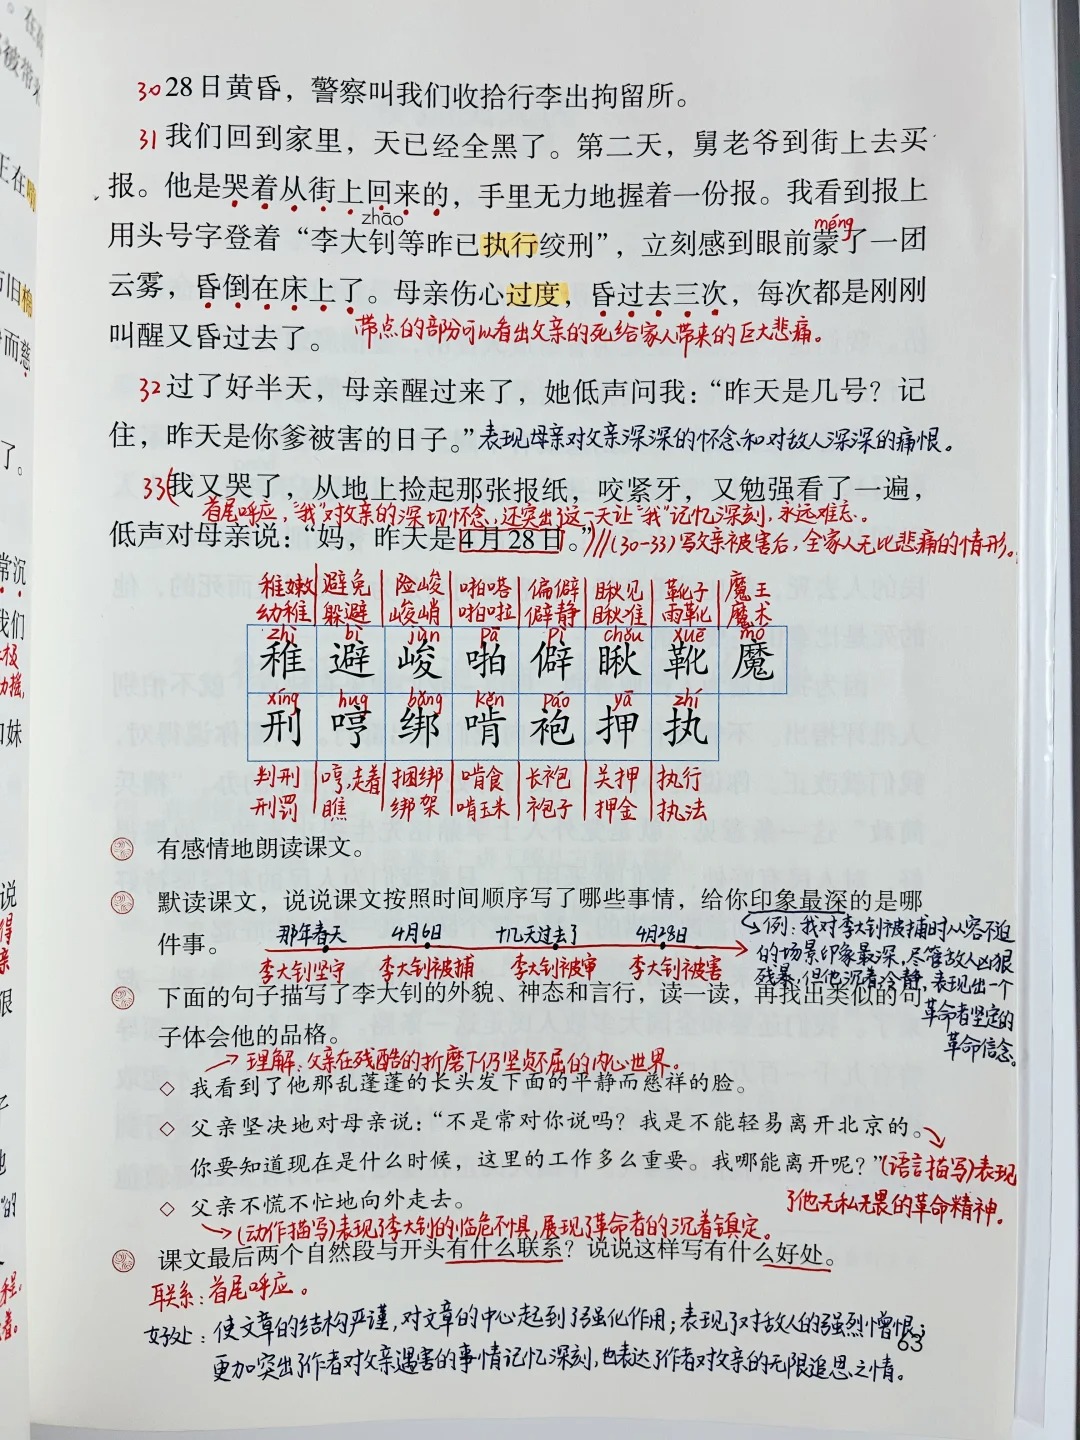 30 28日黄昏，警察叫我们收拾行李出拘留所。
31 我们回到家里，天已经全黑了。第二天，舅老爷到街上去买
报。他是哭着从街上回来的，手里无力地握着一份报。我看到报上
zhāo
méng
用头号字登着“李大钊等昨已执行绞刑”，立刻感到眼前蒙了一团
云雾，昏倒在床上了。母亲伤心过度，昏过去三次，每次都是刚刚
叫醒又昏过去了。
带点的部分可以看出父亲的死给家人带来的巨大悲痛。
32 过了好半天，母亲醒过来了，她低声问我：“昨天是几号？记
住，昨天是你爹被害的日子。”
表现母亲对父亲深深的怀念和对敌人深深的痛恨。
33 我又哭了，从地上捡起那张报纸，咬紧牙，又勉强看了一遍，
首尾呼应，“我”对父亲的深切怀念，还突出了这一天让“我”记忆深刻，永远难忘。
低声对母亲说：“妈，昨天是4月28日。”
(30-33)写父亲被害后，全家人无比悲痛的情形。
稚嫩 避免 险峻 啪嗒 偏僻 瞅见 靴子 魔王
幼稚 躲避 峻峭 啪啦 僻静 瞅准 雨靴 魔术
zhì bì jùn pā pì chǒu xuē mó
稚 避 峻 啪 僻 瞅 靴 魔
xíng hng bǎng kěn páo yā zhí
刑 哼 绑 啃 袍 押 执
判刑 哼着 捆绑 啃食 长袍 关押 执行
刑罚 瞧 绑架 啃玉米 袍子 押金 执法
有感情地朗读课文。
默读课文，说说课文按照时间顺序写了哪些事情，给你印象最深的是哪
件事。
那年春天 4月6日 十几天过去了 4月28日
李大钊坚守 李大钊被捕 李大钊被审 李大钊被害
例：我对李大钊被捕时从容不迫
的场景印象最深，尽管敌人凶狠
残暴，但他沉着冷静，表现出一个
革命者坚定的
革命信念。
下面的句子描写了李大钊的外貌、神态和言行，读一读，再找出类似的句
子体会他的品格。
理解：父亲在残酷的折磨下仍坚贞不屈的内心世界。
◇ 我看到了他那乱蓬蓬的长头发下面的平静而慈祥的脸。
◇ 父亲坚决地对母亲说：“不是常对你说吗？我是不能轻易离开北京的。
你要知道现在是什么时候，这里的工作多么重要。我哪能离开呢？”
(语言描写)表现
了他无私无畏的革命精神。
◇ 父亲不慌不忙地向外走去。
(动作描写)表现了李大钊的临危不惧，展现了革命者的沉着镇定。
课文最后两个自然段与开头有什么联系？说说这样写有什么好处。
联系：首尾呼应。
好处：使文章的结构严谨，对文章的中心起到了强化作用；表现了对敌人的强烈憎恨；
更加突出了作者对父亲遇害的事情记忆深刻，也表达了作者对父亲的无限追思之情。
63